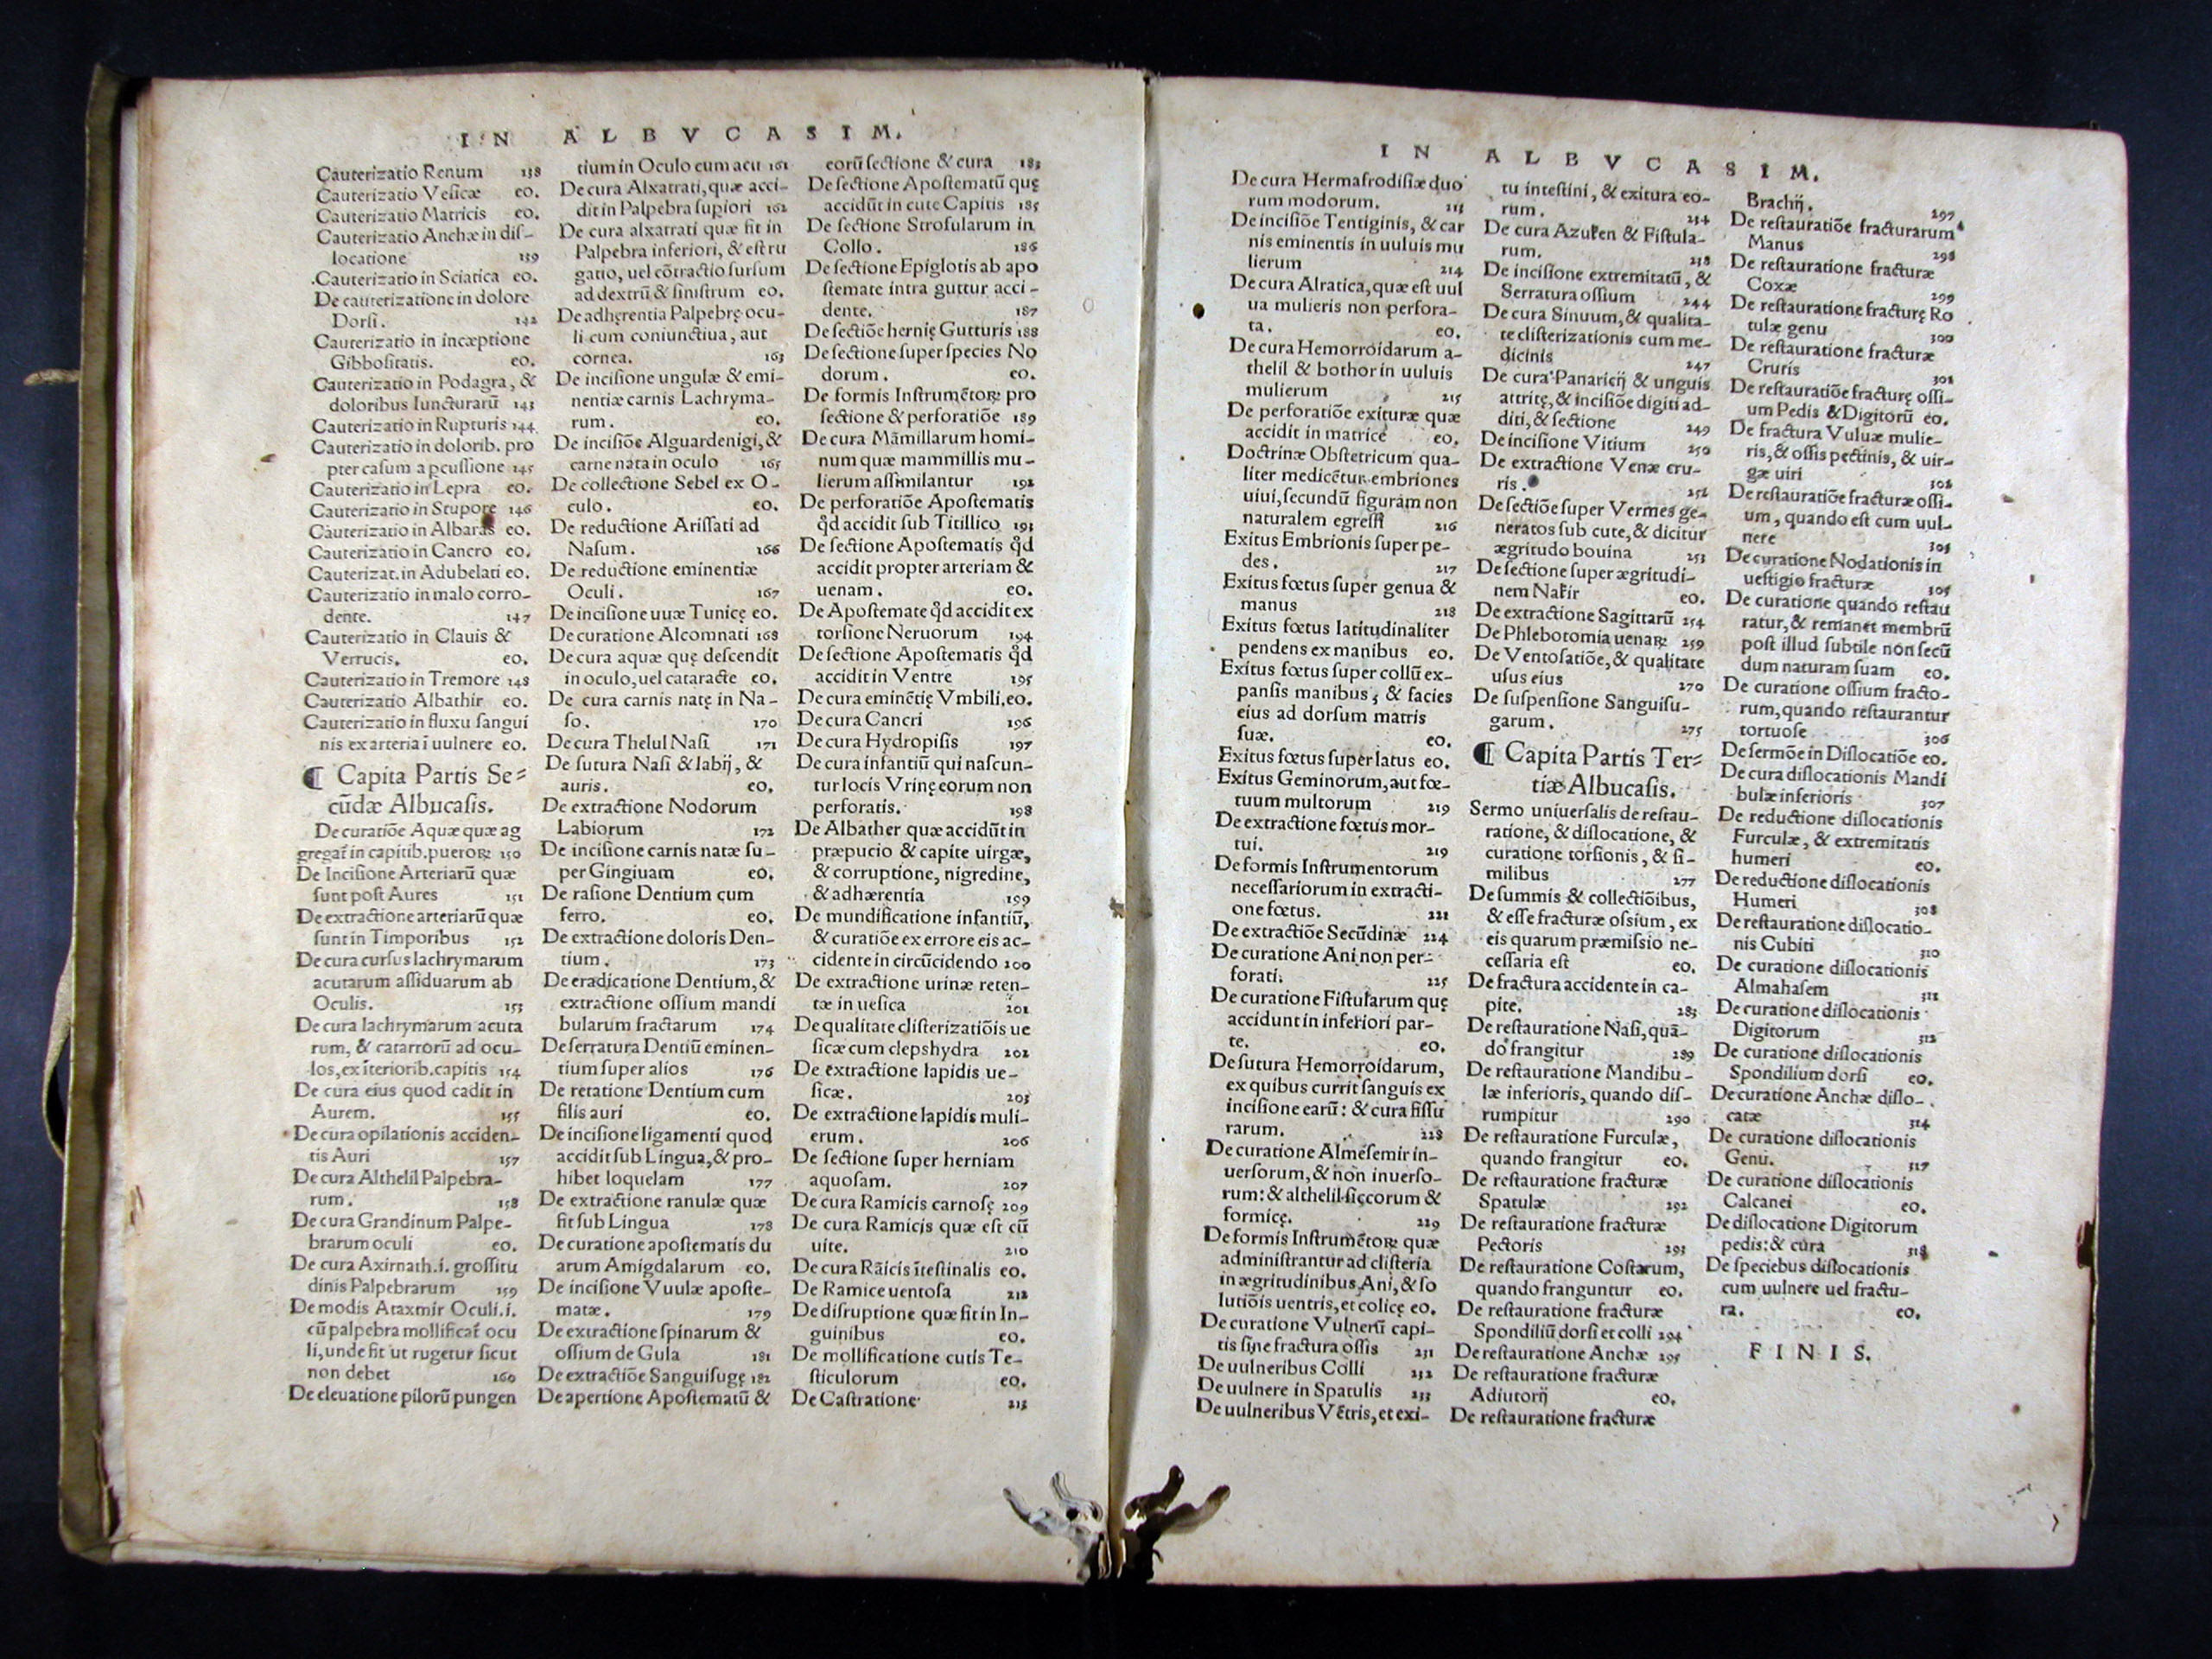 IN ALBVCASIM.
Cauterizatio Renum 138
Cauterizatio Vesicæ eo.
Cauterizatio Matricis eo.
Cauterizatio Anchæ in dis-
locatione 139
Cauterizatio in Sciatica eo.
De cauterizatione in dolore
Dorsi. 142
Cauterizatio in incæptione
Gibbositatis. eo.
Cauterizatio in Podagra, &
doloribus Iuncturarũ 143
Cauterizatio in Rupturis 144
Cauterizatio in dolorib. pro
pter casum a pcussione 145
Cauterizatio in Lepra eo.
Cauterizatio in Stupore 146
Cauterizatio in Albaras eo.
Cauterizatio in Cancro eo.
Cauterizat. in Adubelati eo.
Cauterizatio in malo corro-
dente. 147
Cauterizatio in Clauis &
Verrucis. eo.
Cauterizatio in Tremore 148
Cauterizatio Albathir eo.
Cauterizatio in fluxu sangui
nis ex arteria ĩ uulnere eo.
¶ Capita Partis Se-
cũdæ Albucasis.
De curatiõe Aquæ quæ ag
gregat̃ in capitib. pueroꝝ 150
De Incisione Arteriarũ quæ
sunt post Aures 151
De extractione arteriarũ quæ
sunt in Timporibus 152
De cura cursus lachrymarum
acutarum assiduarum ab
Oculis. 153
De cura lachrymarum acuta
rum, & catarrorũ ad ocu-
los, ex ĩteriorib. capitis 154
De cura eius quod cadit in
Aurem. 155
De cura opilationis acciden-
tis Auri 157
De cura Althelil Palpebra-
rum. 158
De cura Grandinum Palpe-
brarum oculi eo.
De cura Axirnath .i. grossitu
dinis Palpebrarum 159
De modis Ataxmir Oculi .i.
cũ palpebra mollificat̃ ocu
li, unde fit ut rugetur sicut
non debet 160
De eleuatione pilorũ pungen
tium in Oculo cum acu 161
De cura Alxatrati, quæ acci-
dit in Palpebra supiori 162
De cura alxatrati quæ fit in
Palpebra inferiori, & est ru
gatio, uel cõtractio sursum
ad dextrũ & sinistrum eo.
De adhęrentia Palpebrę ocu-
li cum coniunctiua, aut
cornea. 163
De incisione ungulæ & emi-
nentiæ carnis Lachryma-
rum. eo.
De incisiõe Alguardenigi, &
carne nata in oculo 165
De collectione Sebel ex O-
culo. eo.
De reductione Arissati ad
Nasum. 166
De reductione eminentiæ
Oculi. 167
De incisione uuæ Tunicę eo.
De curatione Alcomnati 168
De cura aquæ quę descendit
in oculo, uel cataracte eo.
De cura carnis natę in Na-
so. 170
De cura Thelul Nasi 171
De sutura Nasi & labij, &
auris. eo.
De extractione Nodorum
Labiorum 172
De incisione carnis natæ su-
per Gingiuam eo.
De rasione Dentium cum
ferro. eo.
De extractione doloris Den-
tium. 173
De eradicatione Dentium, &
extractione ossium mandi
bularum fractarum 174
De serratura Dentiũ eminen-
tium super alios 176
De retatione Dentium cum
filis auri eo.
De incisione ligamenti quod
accidit sub Lingua, & pro-
hibet loquelam 177
De extractione ranulæ quæ
fit sub Lingua 178
De curatione apostematis du
arum Amigdalarum eo.
De incisione Vuulæ aposte-
matæ. 179
De extractione spinarum &
ossium de Gula 181
De extractiõe Sanguisugę 182
De apertione Apostematũ &
eorũ sectione & cura 183
De sectione Apostematũ quę
accidũt in cute Capitis 185
De sectione Strofularum in
Collo. 186
De sectione Epiglotis ab apo
stemate intra guttur acci-
dente. 187
De sectiõe hernię Gutturis 188
De sectione super species No
dorum. eo.
De formis Instrumẽtoꝝ pro
sectione & perforatiõe 189
De cura Mãmillarum homi-
num quæ mammillis mu-
lierum assimilantur 192
De perforatiõe Apostematis
q̃d accidit sub Titillico 193
De sectione Apostematis q̃d
accidit propter arteriam &
uenam. eo.
De Apostemate q̃d accidit ex
torsione Neruorum 194
De sectione Apostematis q̃d
accidit in Ventre 195
De cura eminẽtię Vmbili. eo.
De cura Cancri 196
De cura Hydropisis 197
De cura infantiũ qui nascun-
tur locis Vrinę eorum non
perforatis. 198
De Albather quæ accidũt in
præpucio & capite uirgæ,
& corruptione, nigredine,
& adhærentia 199
De mundificatione infantiũ,
& curatiõe ex errore eis ac-
cidente in circũcidendo 200
De extractione urinæ reten-
tæ in uesica 201
De qualitate clisterizatiõis ue
sicæ cum clepshydra 202
De extractione lapidis ue-
sicæ. 203
De extractione lapidis muli-
erum. 206
De sectione super herniam
aquosam. 207
De cura Ramicis carnosę 209
De cura Ramicis quæ est cũ
uite. 210
De cura Rãicis ĩtestinalis eo.
De Ramice uentosa 212
De disruptione quæ fit in In-
guinibus eo.
De mollificatione cutis Te-
sticulorum eo.
De Castratione 213
IN ALBVCASIM.
De cura Hermafrodisiæ duo
rum modorum. 213
De incisiõe Tentiginis, & car
nis eminentis in uuluis mu
lierum 214
De cura Alratica, quæ est uul
ua mulieris non perfora-
ta. eo.
De cura Hemorroidarum a-
thelil & bothor in uuluis
mulierum 215
De perforatiõe exituræ quæ
accidit in matrice eo.
Doctrinæ Obstetricum qua-
liter medicẽtur embriones
uiui, secundũ figuram non
naturalem egressi 216
Exitus Embrionis super pe-
des. 217
Exitus fœtus super genua &
manus 218
Exitus fœtus latitudinaliter
pendens ex manibus eo.
Exitus fœtus super collũ ex-
pansis manibus, & facies
eius ad dorsum matris
suæ. eo.
Exitus fœtus super latus eo.
Exitus Geminorum, aut fœ-
tuum multorum 219
De extractione fœtus mor-
tui. 219
De formis Instrumentorum
necessariorum in extracti-
one fœtus. 221
De extractiõe Secũdinæ 224
De curatione Ani non per-
forati. 225
De curatione Fistularum quę
accidunt in inferiori par-
te. eo.
De sutura Hemorroidarum,
ex quibus currit sanguis ex
incisione earũ: & cura fissu
rarum. 228
De curatione Almesemir in-
uersorum, & non inuerso-
rum: & althelil siccorum &
formicę. 229
De formis Instrumẽtoꝝ quæ
administrantur ad clisteria
in ægritudinibus Ani, & so
lutiõis uentris, et colicę eo.
De curatione Vulnerũ capi-
tis sine fractura ossis 231
De uulneribus Colli 232
De uulnere in Spatulis 233
De uulneribus Vẽtris, et exi-
tu intestini, & exitura eo-
rum. 234
De cura Azuken & Fistula-
rum. 238
De incisione extremitatũ, &
Serratura ossium 244
De cura Sinuum, & qualita-
te clisterizationis cum me-
dicinis 247
De cura Panaricij & unguis
attritę, & incisiõe digiti ad-
diti, & sectione 249
De incisione Vitium 250
De extractione Venæ cru-
ris. 252
De sectiõe super Vermes ge-
neratos sub cute, & dicitur
ægritudo bouina 253
De sectione super ægritudi-
nem Nakir eo.
De extractione Sagittarũ 254
De Phlebotomia uenaꝝ 259
De Ventosatiõe, & qualitate
usus eius 270
De suspensione Sanguisu-
garum. 275
¶ Capita Partis Ter-
tiæ Albucasis.
Sermo uniuersalis de restau-
ratione, & dislocatione, &
curatione torsionis, & si-
milibus 277
De summis & collectiõibus,
& esse fracturæ ossium, ex
eis quarum præmissio ne-
cessaria est eo.
De fractura accidente in ca-
pite. 283
De restauratione Nasi, quã-
do frangitur 289
De restauratione Mandibu-
læ inferioris, quando dis-
rumpitur 290
De restauratione Furculæ,
quando frangitur eo.
De restauratione fracturæ
Spatulæ 292
De restauratione fracturæ
Pectoris 293
De restauratione Costarum,
quando franguntur eo.
De restauratione fracturæ
Spondiliũ dorsi et colli 294
De restauratione Anchæ 295
De restauratione fracturæ
Adiutorij eo.
De restauratione fracturæ
Brachij. 297
De restauratiõe fracturarum
Manus 298
De restauratione fracturæ
Coxæ 299
De restauratione fracturę Ro
tulæ genu 300
De restauratione fracturæ
Cruris 301
De restauratiõe fracturę ossi-
um Pedis & Digitorũ eo.
De fractura Vuluæ mulie-
ris, & ossis pectinis, & uir-
gæ uiri 302
De restauratiõe fracturæ ossi-
um, quando est cum uul-
nere 303
De curatione Nodationis in
uestigio fracturæ 305
De curatione quando restau
ratur, & remanet membrũ
post illud subtile non secũ
dum naturam suam eo.
De curatione ossium fracto-
rum, quando restaurantur
tortuose 306
De sermõe in Dislocatiõe eo.
De cura dislocationis Mandi
bulæ inferioris 307
De reductione dislocationis
Furculæ, & extremitatis
humeri eo.
De reductione dislocationis
Humeri 308
De restauratione dislocatio-
nis Cubiti 310
De curatione dislocationis
Almahasem 312
De curatione dislocationis
Digitorum 312
De curatione dislocationis
Spondilium dorsi eo.
De curatione Anchæ dislo-
catæ 314
De curatione dislocationis
Genu. 317
De curatione dislocationis
Calcanei eo.
De dislocatione Digitorum
pedis: & cura 318
De speciebus dislocationis
cum uulnere uel fractu-
ra. eo.
FINIS.